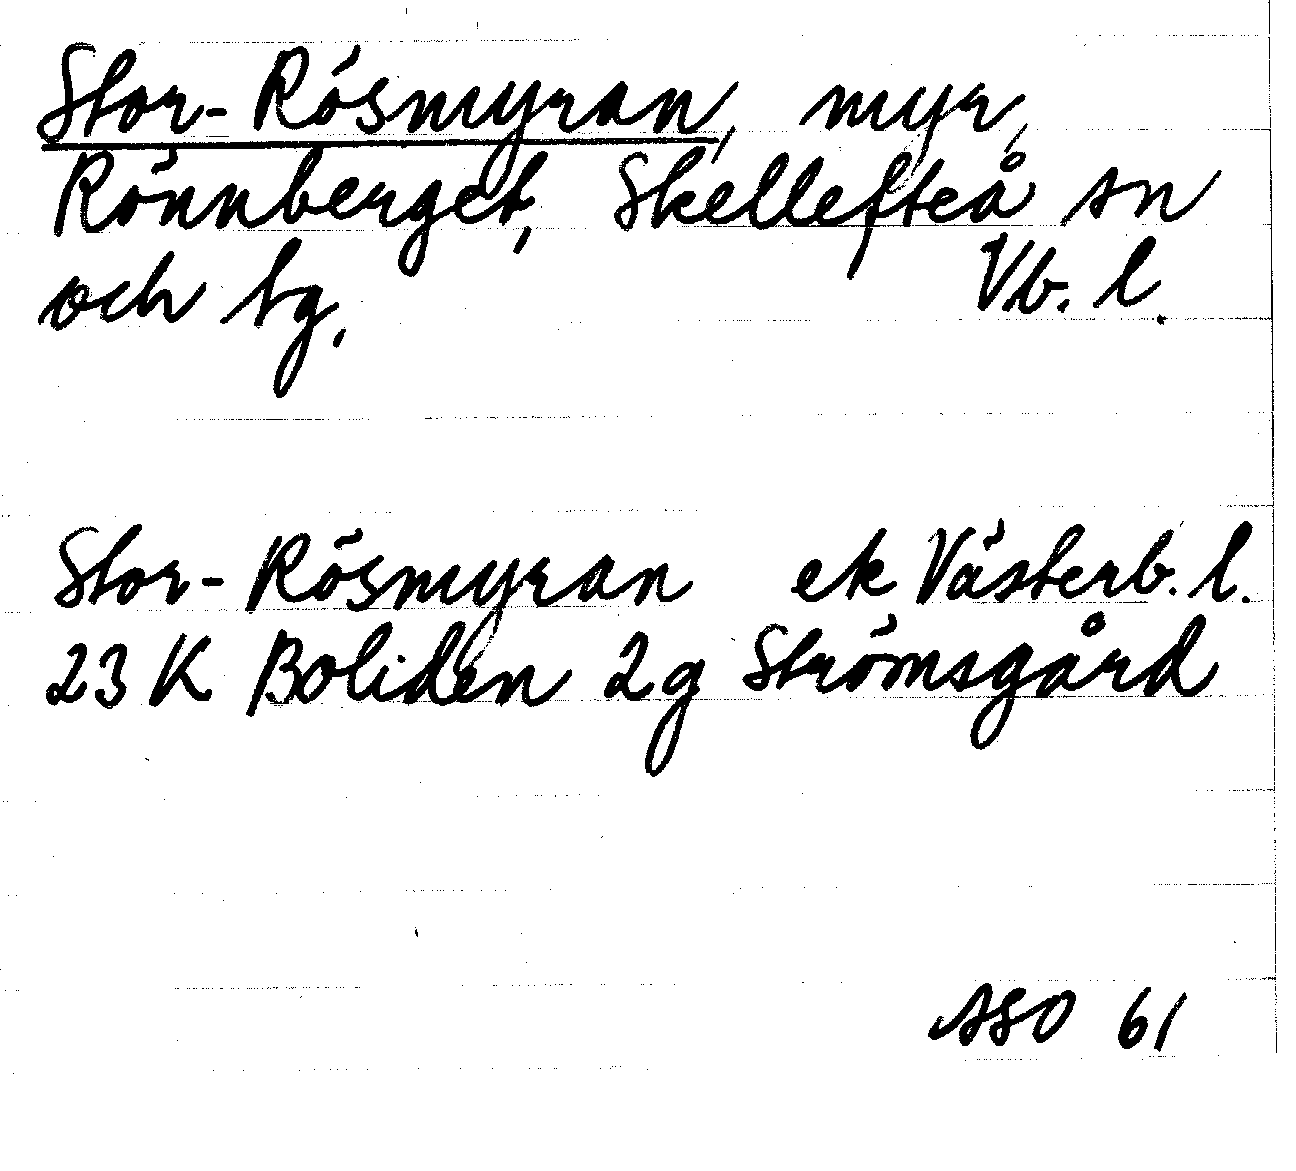 Stor-Rösmyran, myr,
Rönnberget, Skellefteå sn
och tg. Vb. l.
Stor-Rösmyran ek Västerb. l.
23 K Boliden 2g Strömsgård
ASO 61